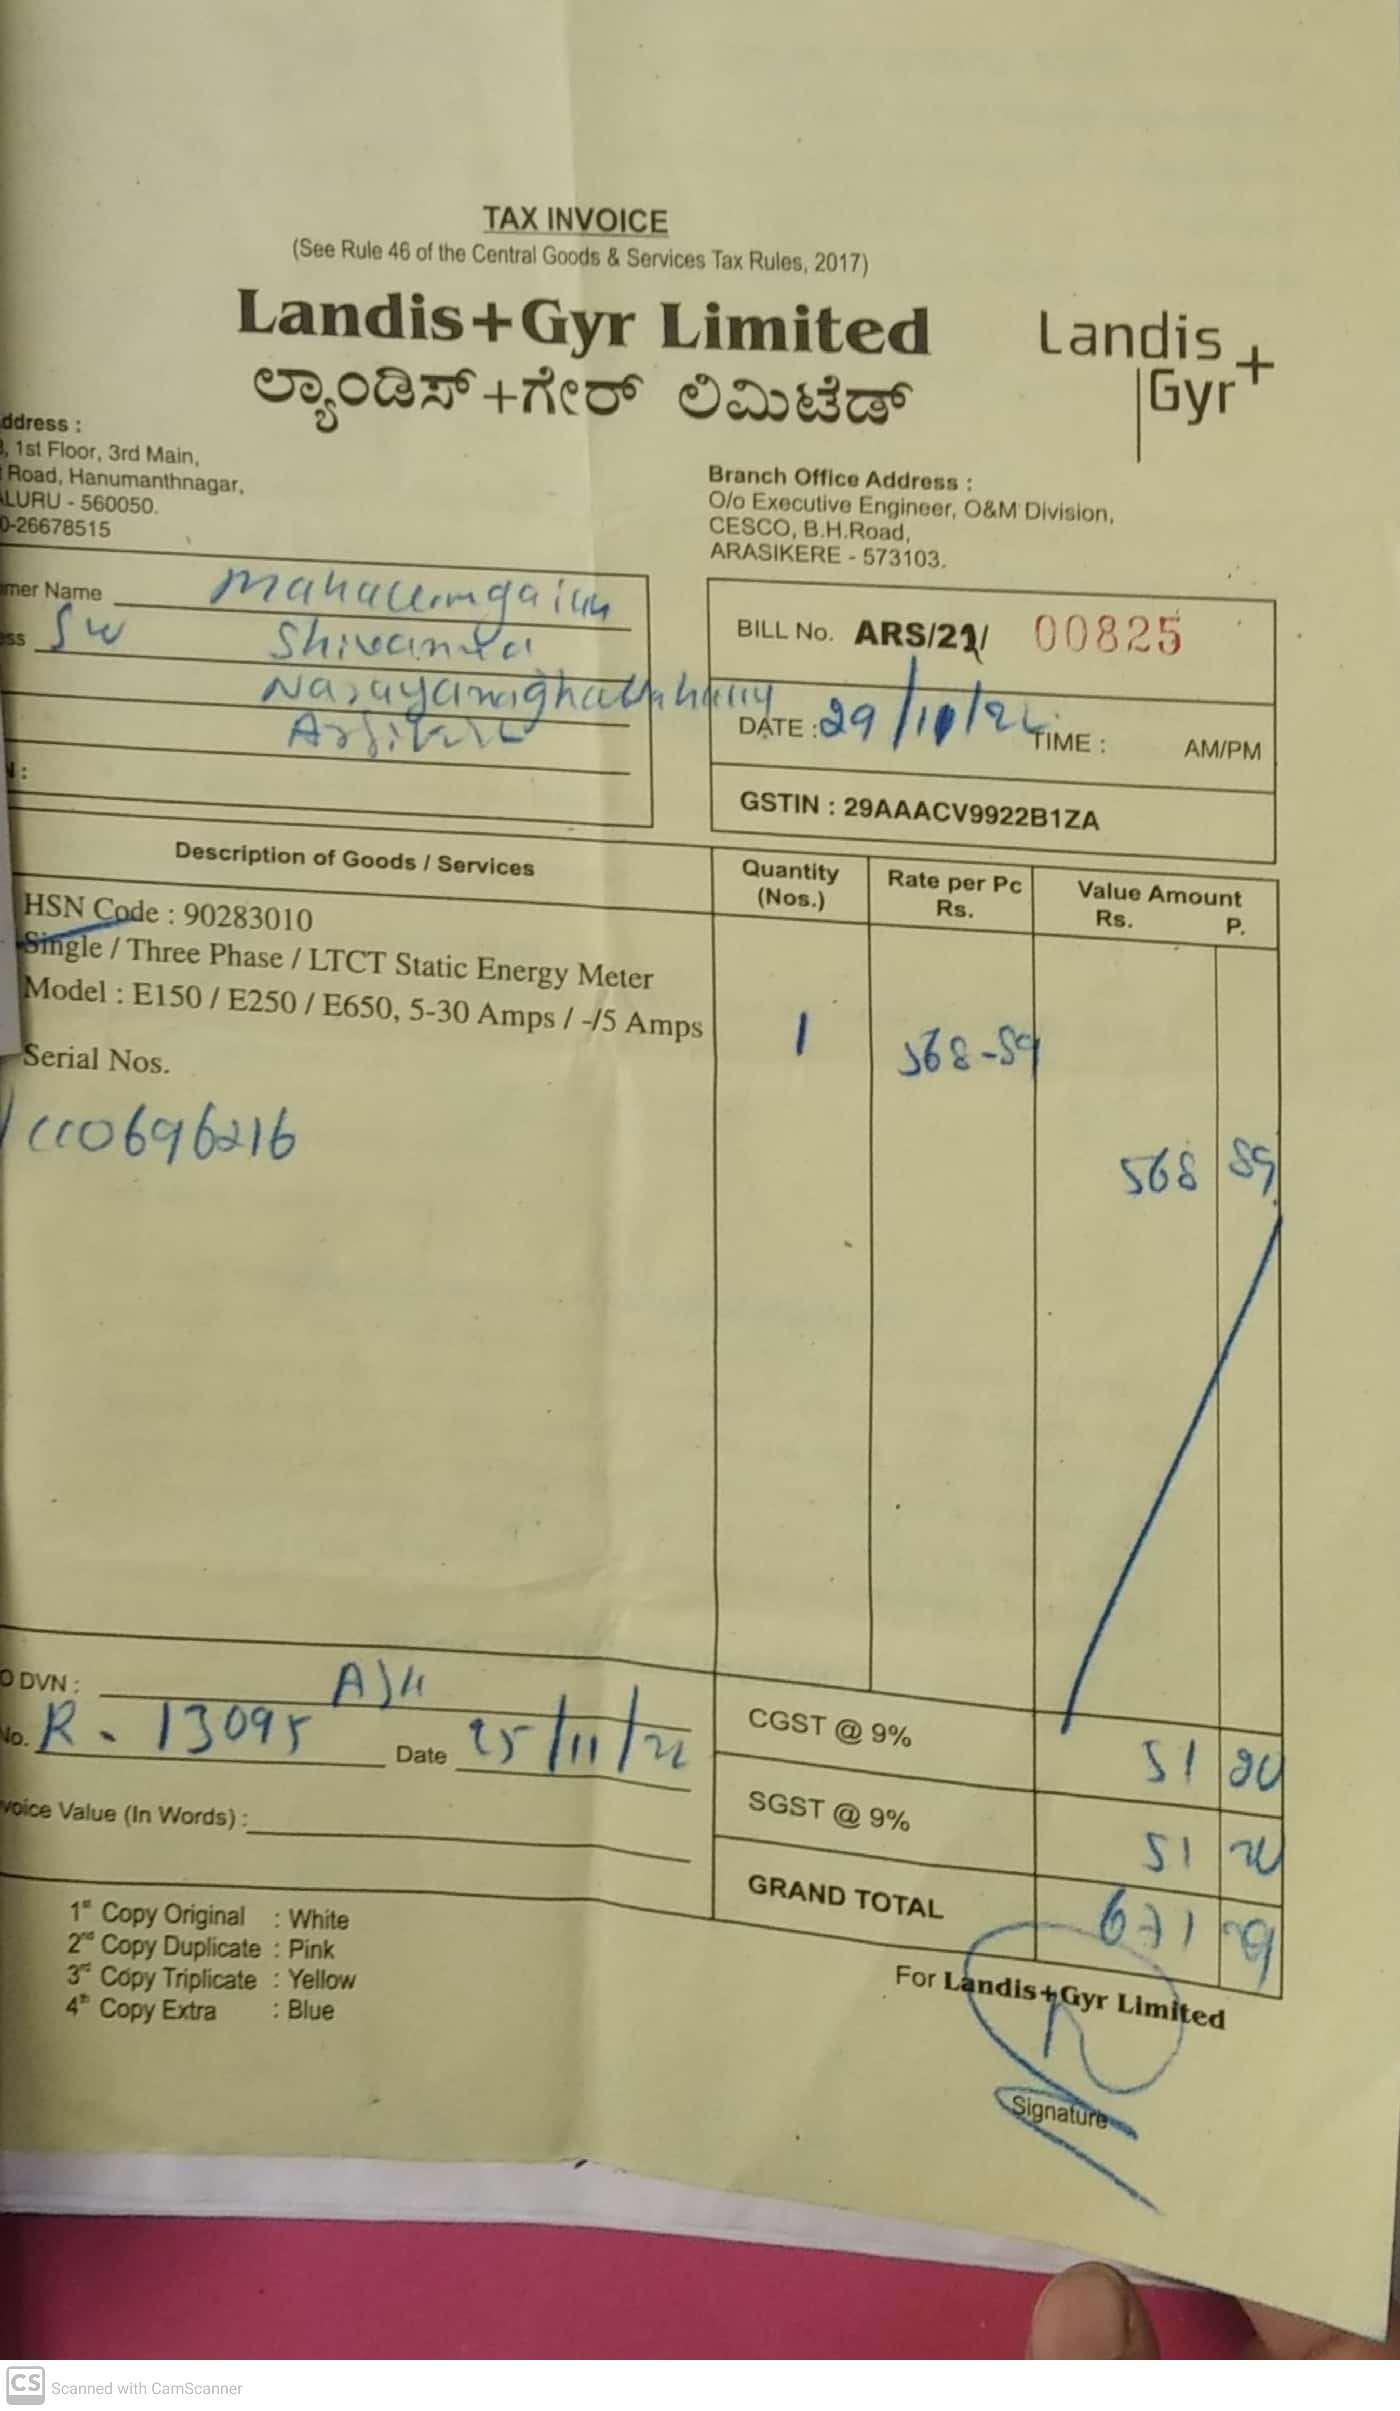 TAX INVOICE
(See Rule 46 of the Central Goods & Services Tax Rules, 2017)
Landis+Gyr Limited
ಲ್ಯಾಂಡಿಸ್+ಗೇರ್ ಲಿಮಿಟೆಡ್
Landis
Gyr+
ddress :
, 1st Floor, 3rd Main,
Road, Hanumanthnagar,
LURU - 560050.
0-26678515
Branch Office Address :
O/o Executive Engineer, O&M Division,
CESCO, B.H.Road,
ARASIKERE - 573103.
mer Name
ess
Shivanna
BILL No. ARS/21/ 00825
DATE : 29/11/22 TIME : AM/PM
GSTIN : 29AAACV9922B1ZA
Description of Goods / Services Quantity (Nos.) Rate per Pc Rs. Value Amount Rs. P.
HSN Code : 90283010
Single / Three Phase / LTCT Static Energy Meter
Model : E150 / E250 / E650, 5-30 Amps / -/5 Amps
1 568-89
Serial Nos.
568 89
O DVN :
No. R - 13095 Date 25/11/22
CGST @ 9% 51 20
voice Value (In Words) :
SGST @ 9% 51 20
GRAND TOTAL 671 29
1st Copy Original : White
2nd Copy Duplicate : Pink
3rd Copy Triplicate : Yellow
4th Copy Extra : Blue
For Landis+Gyr Limited
Signature
CS Scanned with CamScanner